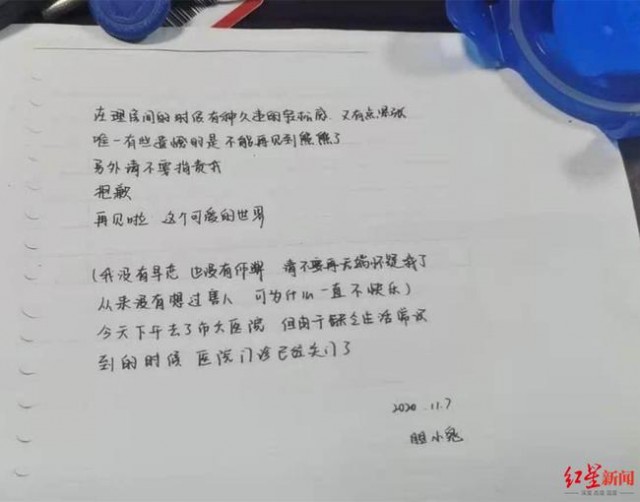 在理房间的时候有种久违的轻松感 又有点紧张
唯一有些遗憾的是不能再见到熊熊了
另外请不要指责我
抱歉
再见啦 这个可爱的世界
(我没有早恋 也没有作弊 请不要再无端怀疑我了
从来没有想过害人 可为什么一直不快乐)
今天下午去了市六医院 但由于缺乏生活常识
到的时候 医院门诊已经关门了
2020.11.7
胆小鬼
红星新闻